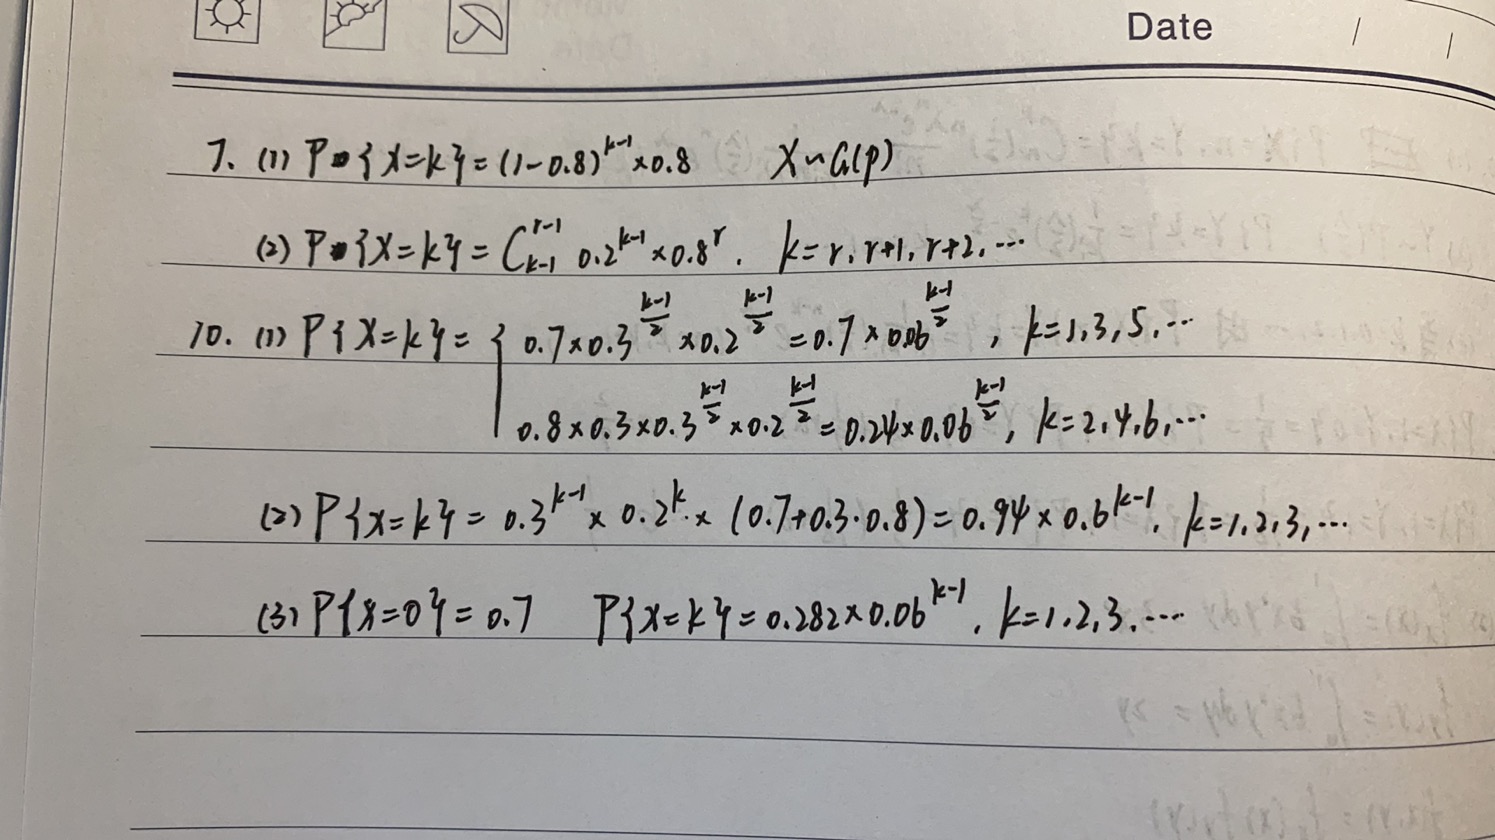 Date / /
7. (1) P{X=k}=(1-0.8)^{k-1}×0.8 X~G(p)
(2) P{X=k}=C_{k-1}^{r-1} 0.2^{k-1}×0.8^r. k=r,r+1,r+2,…
10. (1) P{X=k}={ 0.7×0.3^{\frac{k-1}{2}}×0.2^{\frac{k-1}{2}}=0.7×0.06^{\frac{k-1}{2}}, k=1,3,5,…
0.8×0.3×0.3^{\frac{k-1}{2}}×0.2^{\frac{k-1}{2}}=0.24×0.06^{\frac{k-1}{2}}, k=2,4,6,…
(2) P{X=k}=0.3^{k-1}×0.2^k×(0.7+0.3·0.8)=0.94×0.6^{k-1}. k=1,2,3,…
(3) P{X=0}=0.7 P{X=k}=0.282×0.06^{k-1}, k=1,2,3.…